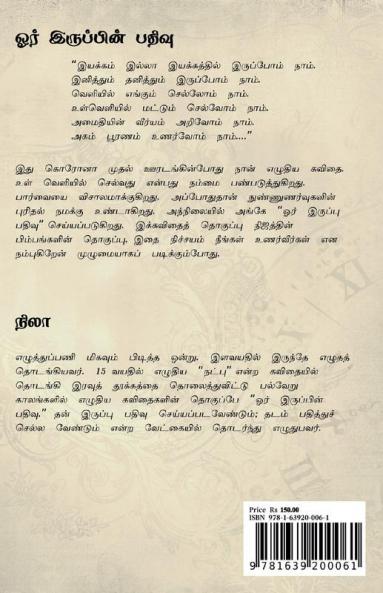 ஓர் இருப்பின் பதிவு
“இயக்கம் இல்லா இயக்கத்தில் இருப்போம் நாம்.
இனித்தும் தனித்தும் இருப்போம் நாம்.
வெளியில் எங்கும் செல்லோம் நாம்.
உள்வெளியில் மட்டும் செல்வோம் நாம்.
அமைதியின் வீர்யம் அறிவோம் நாம்.
அகம் பூரணம் உணர்வோம் நாம்....”
இது கொரோனா முதல் ஊரடங்கின்போது நான் எழுதிய கவிதை.
உள் வெளியில் செல்வது என்பது நம்மை பண்படுத்துகிறது.
பார்வையை விசாலமாக்குகிறது. அப்போதுதான் நுண்ணுணர்வுகளின்
புரிதல் நமக்கு உண்டாகிறது. அந்நிலையில் அங்கே “ஓர் இருப்பு
பதிவு” செய்யப்படுகிறது. இக்கவிதைத் தொகுப்பு நிஜத்தின்
பிம்பங்களின் தொகுப்பு. இதை நிச்சயம் நீங்கள் உணர்வீர்கள் என
நம்புகிறேன் முழுமையாகப் படிக்கும்போது.
நிலா
எழுத்துப்பணி மிகவும் பிடித்த ஒன்று. இளவயதில் இருந்தே எழுதத்
தொடங்கியவர். 15 வயதில் எழுதிய “நட்பு” என்ற கவிதையில்
தொடங்கி இரவுத் தூக்கத்தை தொலைத்துவிட்டு பல்வேறு
காலங்களில் எழுதிய கவிதைகளின் தொகுப்பே “ஓர் இருப்பின்
பதிவு.” தன் இருப்பு பதிவு செய்யப்படவேண்டும்; தடம் பதித்துச்
செல்ல வேண்டும் என்ற வேட்கையில் தொடர்ந்து எழுதுபவர்.
Price Rs 150.00
ISBN 978-1-63920-006-1
9 781639 200061